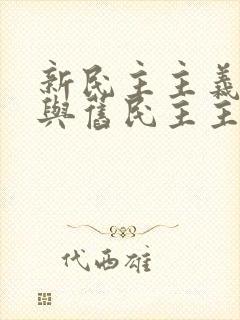 新民主主義
與舊民主主
代西雄